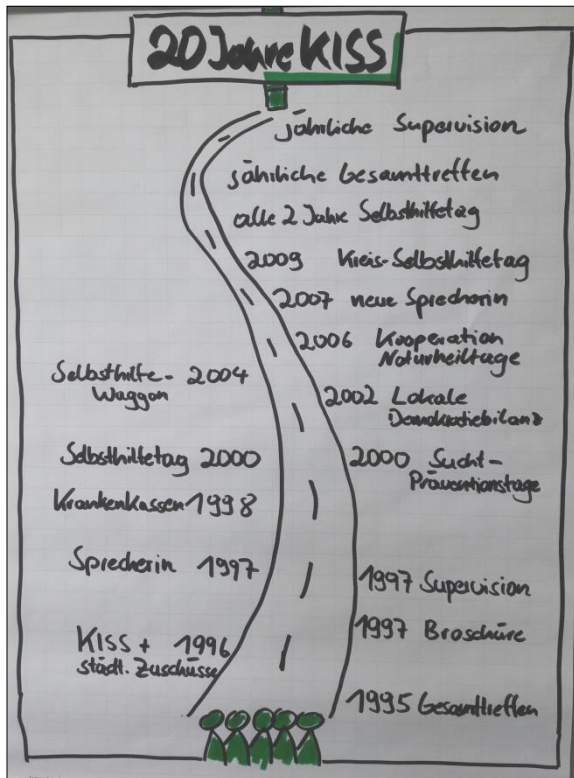 20 Jahre KISS
jährliche Supervision
jährliche Gesamttreffen
alle 2 Jahre Selbsthilfetag
2009 Kreis-Selbsthilfetag
2007 neue Sprecherin
2006 Kooperation
Naturheiltage
Selbsthilfe- 2004
Waggon
2002 Lokale
Demokratiebilanz
Selbsthilfetag 2000
2000 Sucht-
Präventionstage
Krankenkassen 1998
Sprecherin 1997
1997 Supervision
1997 Broschüre
KISS + 1996
städt. Zuschüsse
1995 Gesamttreffen